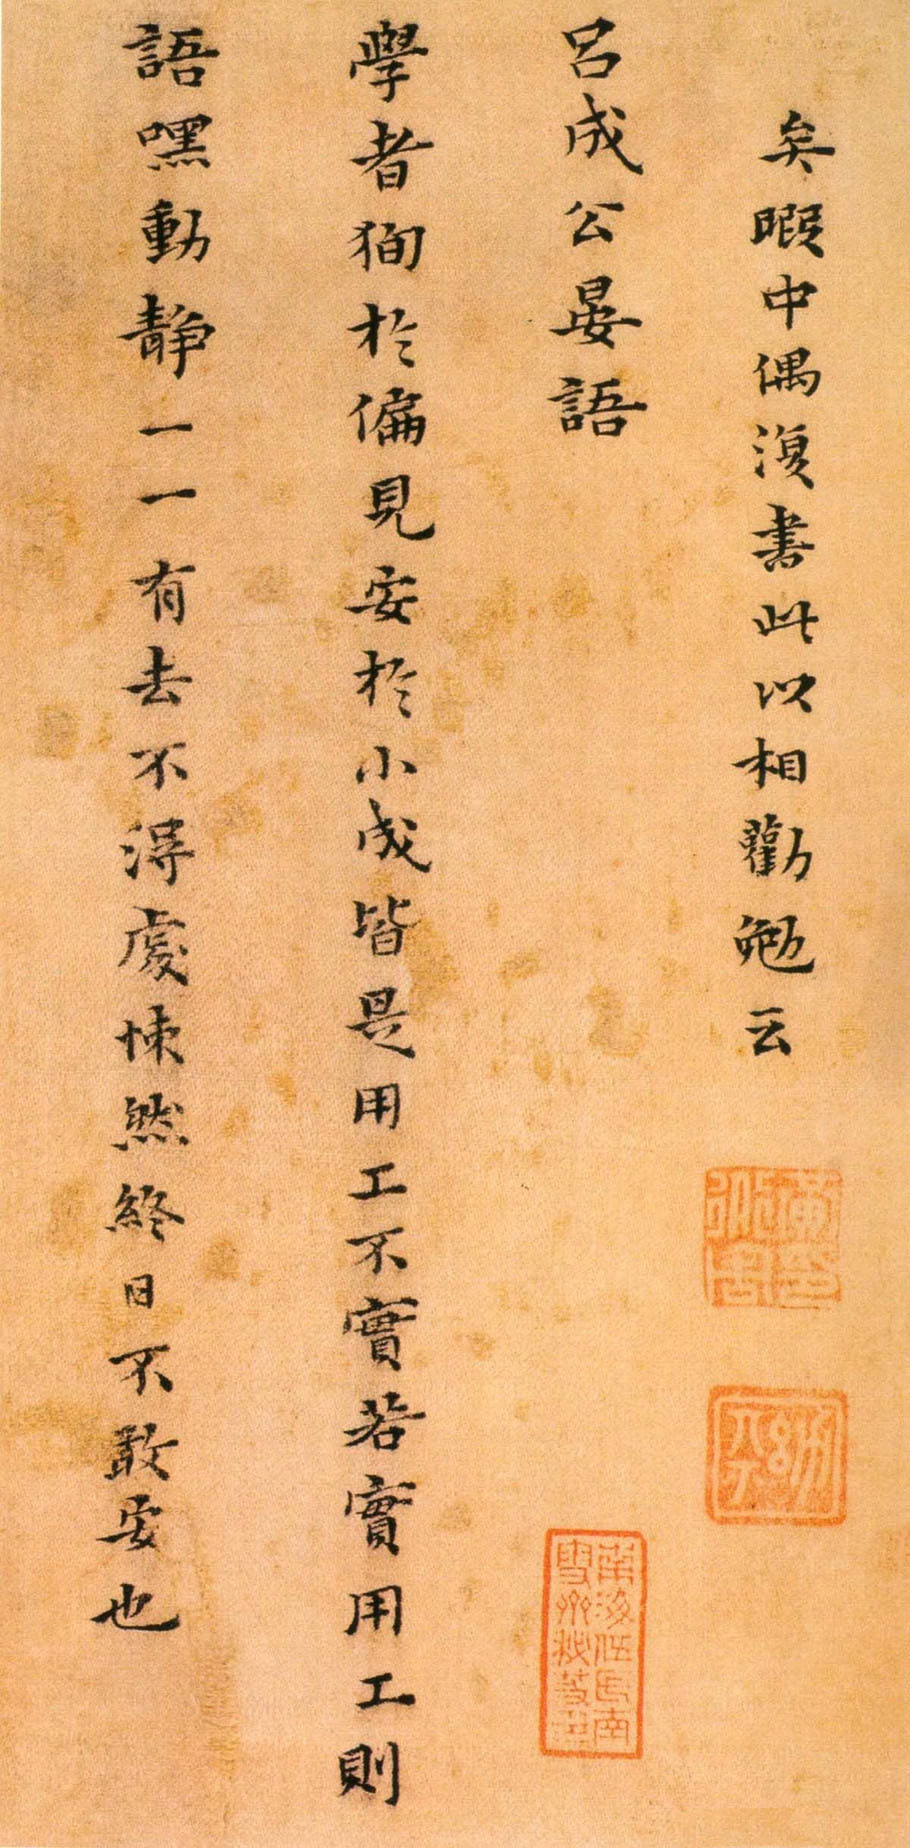 矣暇中偶復書此以相勸勉云
呂成公晏語
學者狥於偏見安於小成皆是用工不實若實用工則
語嘿動静一一有去不得處悚然終日不敢安也
南海伍氏南
雪齋秘笈印